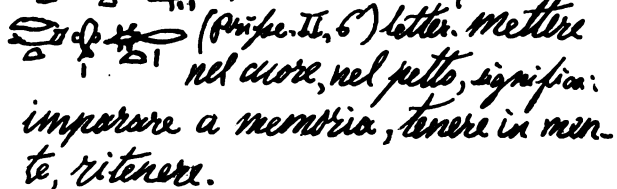 (Prisse. II, 6) letter. mettere
nel cuore, nel petto, significa:
imparare a memoria, tenere in men-
te, ritenere.